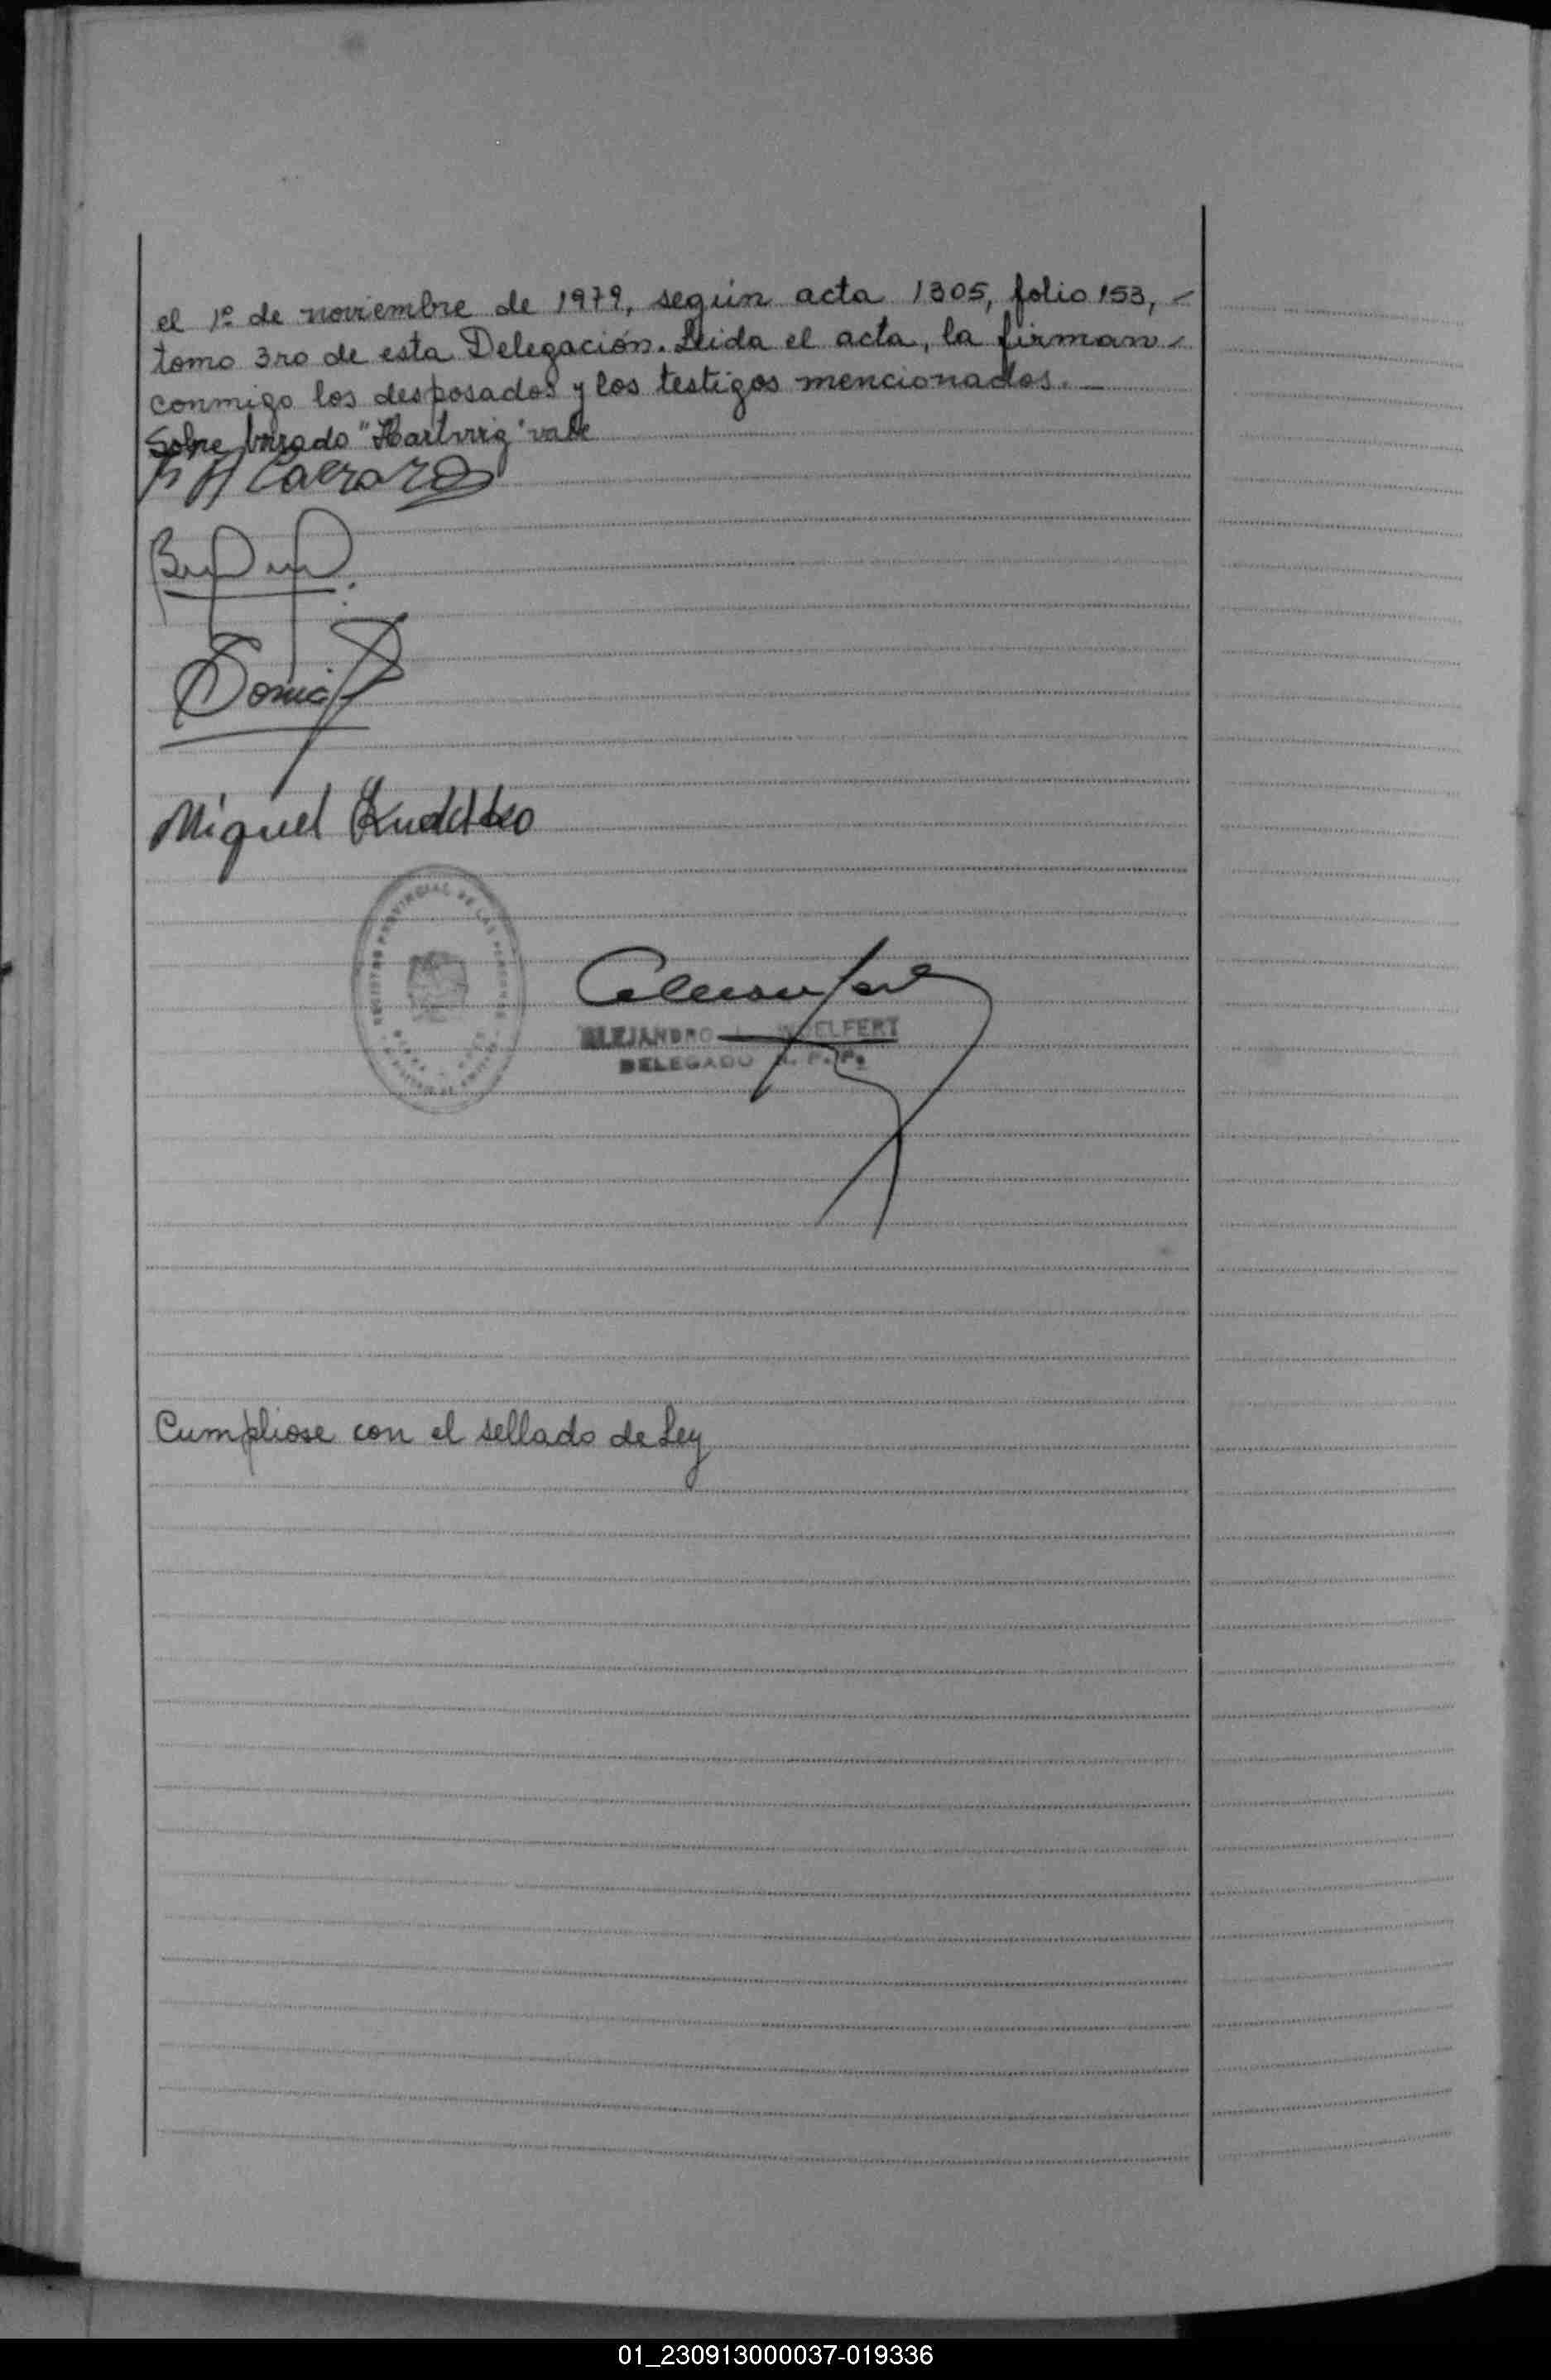 el 1º de noviembre de 1979, según acta 1305, folio 153, -
tomo 3ro de esta Delegación. Leida el acta, la firman -
conmigo los desposados y los testigos mencionados. -
Sobre borrado "Hartwig" vale
Miguel
REGISTRO PROVINCIAL DE LAS PERSONAS
ALEJANDRO
DELEGADO R. P. P.
Cumpliose con el sellado de Ley
01_230913000037-019336